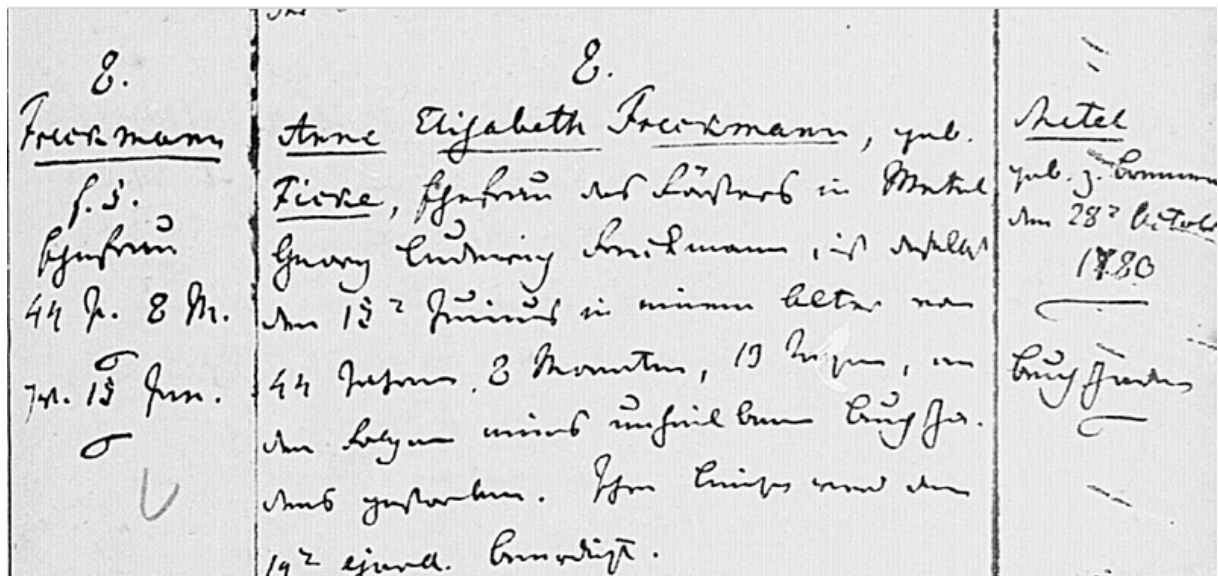 8.
Freckmann
f. d.
Ehefrau
44 J. 8 M.
gst. 15 Jun.
8.
Anne Elisabeth Freckmann, geb.
Ficke, Ehefrau des Försters in Metel
Georg Ludewig Freckmann, ist daselbst
den 15ᵗ Junius in einem Alter von
44 Jahren, 8 Monaten, 19 Tagen, an
den Folgen eines unheilbaren Bruchscha-
dens gestorben. Ihre Leiche ward den
19ᵗ ejusd. beerdigt.
Metel
geb. z.
den 28ᵗ October
1780
Bruchschaden